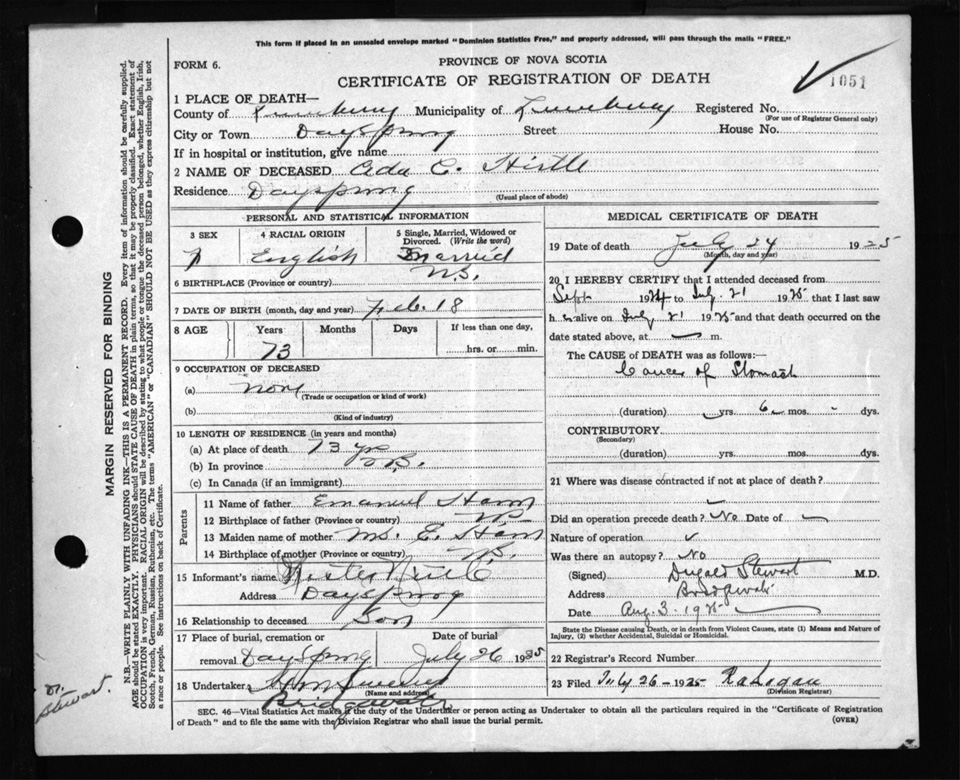 This form if placed in an unsealed envelope marked "Dominion Statistics Free," and properly addressed, will pass through the mails "FREE."
FORM 6.
PROVINCE OF NOVA SCOTIA
CERTIFICATE OF REGISTRATION OF DEATH
1051
1 PLACE OF DEATH—
County of Lunenburg Municipality of Lunenburg Registered No.
(For use of Registrar General only)
City or Town Dayspring Street House No.
If in hospital or institution, give name
2 NAME OF DECEASED Ada C. Hirtle
Residence Dayspring
(Usual place of abode)
PERSONAL AND STATISTICAL INFORMATION
3 SEX
4 RACIAL ORIGIN English
5 Single, Married, Widowed or Divorced. (Write the word) Married
6 BIRTHPLACE (Province or country) N.S.
7 DATE OF BIRTH (month, day and year) Feb. 18
8 AGE Years Months Days If less than one day,
73 hrs. or min.
9 OCCUPATION OF DECEASED
(a) none
(Trade or occupation or kind of work)
(b)
(Kind of industry)
10 LENGTH OF RESIDENCE (in years and months)
(a) At place of death 73 yrs
(b) In province
(c) In Canada (if an immigrant)
Parents
11 Name of father Emanuel Ham
12 Birthplace of father (Province or country)
13 Maiden name of mother Ms. E. Ham
14 Birthplace of mother (Province or country) N.S.
15 Informant's name Hirtle
Address Dayspring
16 Relationship to deceased Son
17 Place of burial, cremation or Date of burial
removal Dayspring July 26 1925
18 Undertaker
(Name and address)
Bridgewater
MEDICAL CERTIFICATE OF DEATH
19 Date of death July 24 1925
(Month, day and year)
20 I HEREBY CERTIFY that I attended deceased from
Sept 1924 to July 21 1925 that I last saw
her alive on July 21 1925 and that death occurred on
date stated above, at m.
The CAUSE of DEATH was as follows:
Cancer of Stomach
(duration) yrs. 6 mos. - dys.
CONTRIBUTORY
(Secondary)
(duration) yrs. mos. dys.
21 Where was disease contracted if not at place of death?
Did an operation precede death? No Date of
Nature of operation
Was there an autopsy? No
(Signed) Dugald Stewart M.D.
Address Bridgewater
Date Aug. 3. 1925
State the Disease causing Death, or in death from Violent Causes, state (1) Means and Nature of Injury, (2) whether Accidental, Suicidal or Homicidal.
22 Registrar's Record Number
23 Filed July 26 - 1925
(Division Registrar)
SEC. 46—Vital Statistics Act makes it the duty of the Undertaker or person acting as Undertaker to obtain all the particulars required in the "Certificate of Registration
of Death" and to file the same with the Division Registrar who shall issue the burial permit.
(OVER)
MARGIN RESERVED FOR BINDING
N.B.—WRITE PLAINLY WITH UNFADING INK—THIS IS A PERMANENT RECORD. Every item of information should be carefully supplied.
AGE should be stated EXACTLY. PHYSICIANS should STATE CAUSE OF DEATH in plain terms, so that it may be properly classified. Exact statement of
OCCUPATION is very important. RACIAL ORIGIN will be described by stating to what people or tongue the deceased person belonged, whether English, Irish,
Scotch, French, German, Russian, Ruthenian, etc. The terms "AMERICAN" or "CANADIAN" SHOULD NOT BE USED as they express citizenship but not
a race or people. See instructions on back of Certificate.
Dr. Stewart.